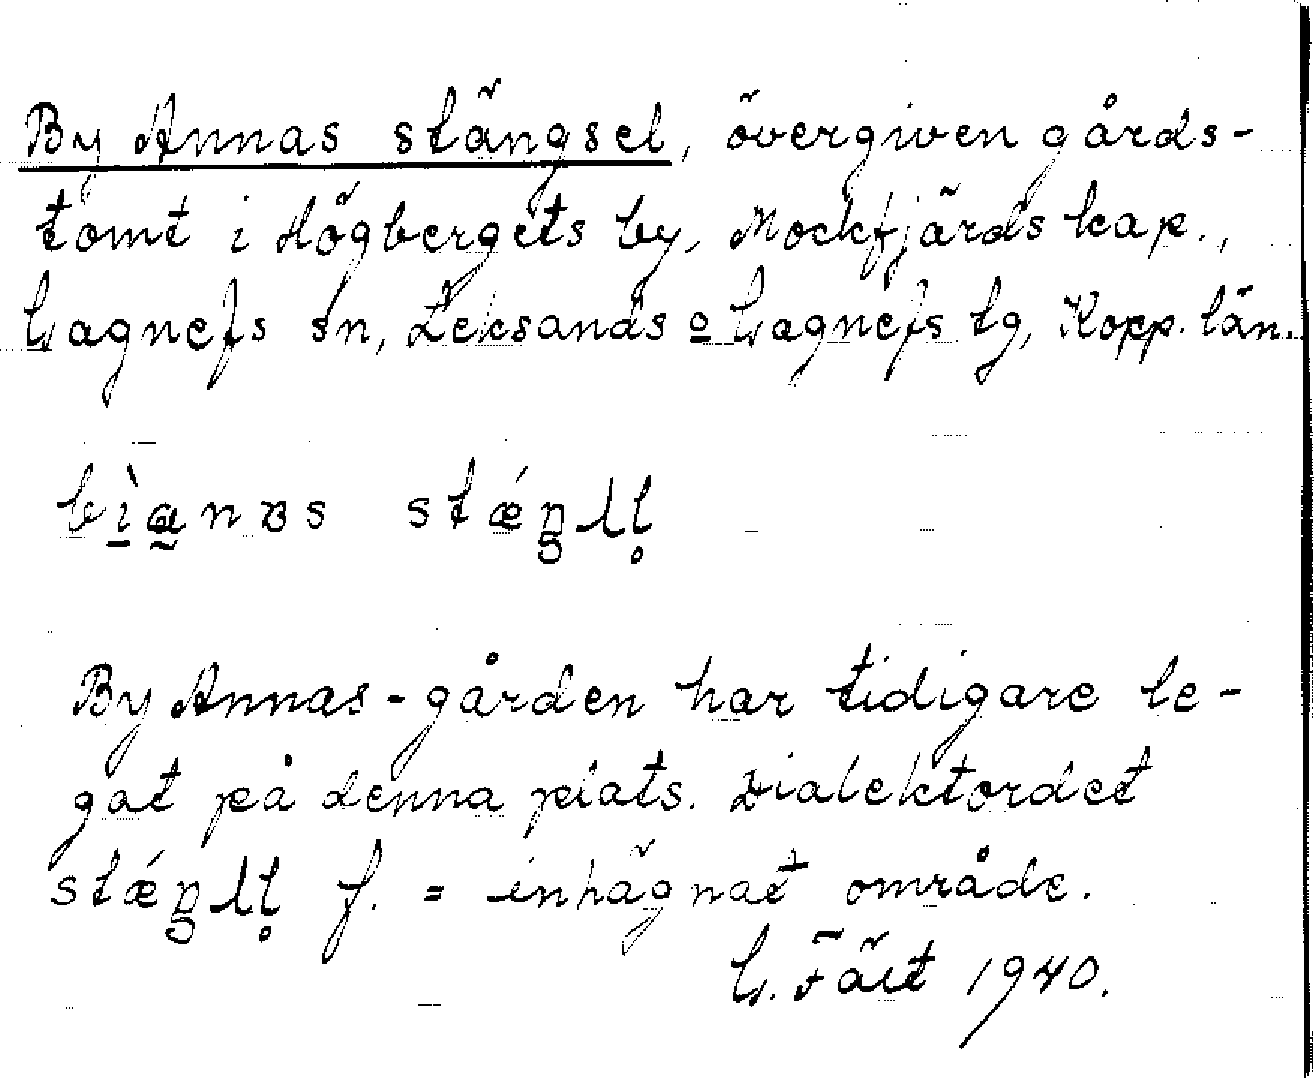 By Annas stängsel, övergiven gårds-
tomt i Högbergets by, Mockfjärds kap.,
Gagnefs sn, Leksands o Gagnefs tg, Kopp. län.
By Annas-gården har tidigare le-
gat på denna plats. Dialektordet
f. = inhägnat område.
G. Fält 1940.